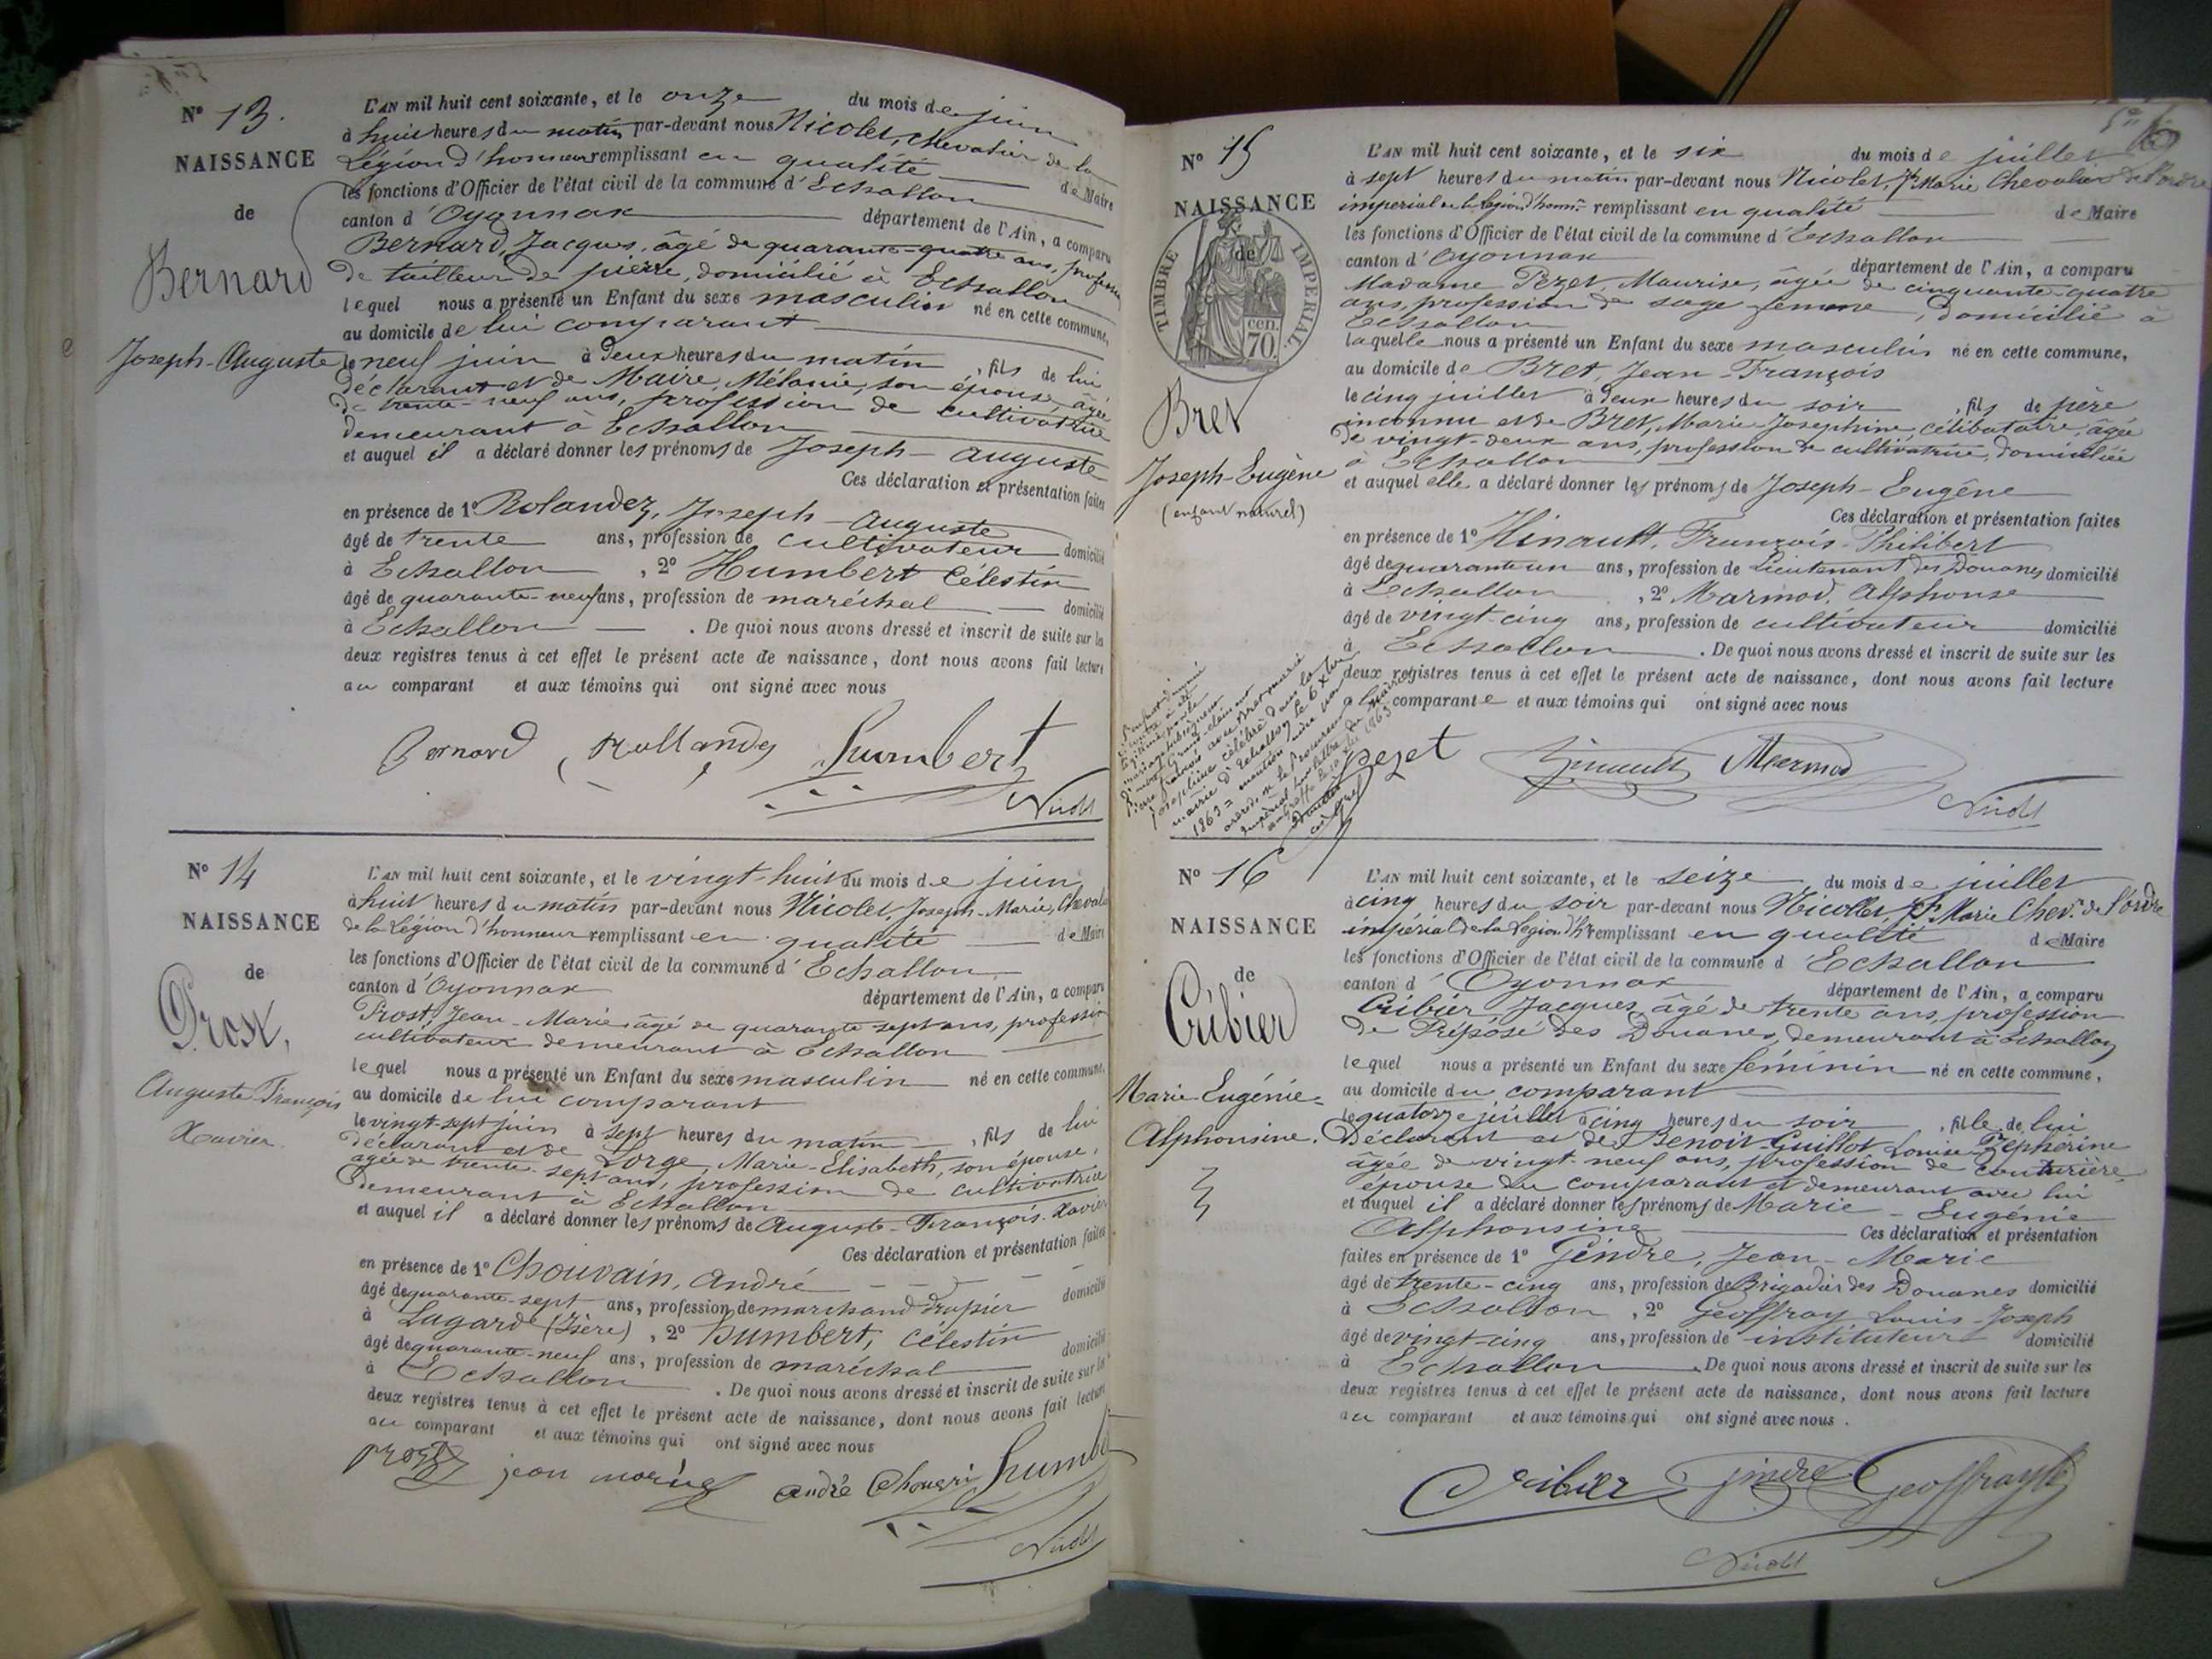 N° 13.
NAISSANCE
de
Bernard
Joseph-Auguste
L'AN mil huit cent soixante, et le onze du mois de juin
à huit heures du matin par-devant nous Nicolet, chevalier de la
Légion d'honneur remplissant en qualité de Maire
les fonctions d'Officier de l'état civil de la commune d'Echallon
canton d'Oyonnax département de l'Ain, a comparu
Bernard, Jacques, âgé de quarante-quatre ans, profession
de tailleur de pierre, domicilié à Echallon
lequel nous a présenté un Enfant du sexe masculin né en cette commune,
au domicile de lui comparant
le neuf juin à deux heures du matin, fils de lui
déclarant et de Maire, Mélanie, son épouse âgée
de trente-neuf ans, profession de cultivatrice
demeurant à Echallon
et auquel il a déclaré donner les prénoms de Joseph-Auguste
Ces déclaration et présentation faites
en présence de 1° Rolandez, Joseph-Auguste
âgé de trente ans, profession de cultivateur domicilié
à Echallon, 2° Humbert Célestin
âgé de quarante-neuf ans, profession de maréchal domicilié
à Echallon. De quoi nous avons dressé et inscrit de suite sur les
deux registres tenus à cet effet le présent acte de naissance, dont nous avons fait lecture
au comparant et aux témoins qui ont signé avec nous
Bernard Rollandez humbert
Nicolet
N° 14
NAISSANCE
de
Prost,
Auguste François
Xavier.
L'AN mil huit cent soixante, et le vingt-huit du mois de juin
à huit heures du matin par-devant nous Nicolet, Joseph-Marie, Cheval
de la Légion d'honneur remplissant en qualité de Maire
les fonctions d'Officier de l'état civil de la commune d'Echallon
canton d'Oyonnax département de l'Ain, a comparu
Prost, Jean-Marie âgé de quarante sept ans, profession
cultivateur demeurant à Echallon
lequel nous a présenté un Enfant du sexe masculin né en cette commune,
au domicile de lui comparant
le vingt-sept juin à sept heures du matin, fils de lui
déclarant et de Lorge, Marie-Elisabeth, son épouse,
âgée de trente-sept ans, profession de cultivatrice
demeurant à Echallon
et auquel il a déclaré donner les prénoms de Auguste-François-Xavier
Ces déclaration et présentation faites
en présence de 1° Chouvain, André
âgé de quarante-sept ans, profession de marchand drapier domicilié
à Lagard (Isère), 2° humbert, Célestin
âgé de quarante-neuf ans, profession de maréchal domicilié
à Echallon. De quoi nous avons dressé et inscrit de suite sur les
deux registres tenus à cet effet le présent acte de naissance, dont nous avons fait lecture
au comparant et aux témoins qui ont signé avec nous
prost jean marie andré Chouvin humbe
Nicolet
N° 15
NAISSANCE
de
TIMBRE IMPERIAL
cen.
70
Bret
Joseph-Eugène
(enfant naturel)
L'AN mil huit cent soixante, et le six du mois de juillet
à sept heures du matin par-devant nous Nicolet, Jh Marie Chevalier de l'ordre
impérial de la Légion d'honnr. remplissant en qualité de Maire
les fonctions d'Officier de l'état civil de la commune d'Echallon
canton d'Oyonnax département de l'Ain, a comparu
Madame Pezet, Maurise, âgée de cinquante-quatre
ans, profession de sage femme, domicilié à
Echallon
laquelle nous a présenté un Enfant du sexe masculin né en cette commune,
au domicile de Bret, Jean-François
le cinq juillet à deux heures du soir, fils de père
inconnu et de Bret, Marie-Josephine, célibataire, âgée
de vingt-deux ans, profession de cultivatrice, domiciliée
à Echallon
et auquel elle a déclaré donner les prénoms de Joseph-Eugène
Ces déclaration et présentation faites
en présence de 1° Hinault, François-Philibert
âgé de quarante un ans, profession de Lieutenant des Douanes domicilié
à Echallon, 2° Marmod, Alphonse
âgé de vingt-cinq ans, profession de cultivateur domicilié
à Echallon. De quoi nous avons dressé et inscrit de suite sur les
deux registres tenus à cet effet le présent acte de naissance, dont nous avons fait lecture
a la comparante et aux témoins qui ont signé avec nous
ci-contre a été
légitimé par le
mariage
Josephine célébré dans la
mairie d'Echallon le 6 Xbre
1863
pezet hinault Marmod
Nicolet
N° 16
NAISSANCE
de
Cribier
Marie-Eugénie-
Alphonsine.
L'AN mil huit cent soixante, et le seize du mois de juillet
à cinq heures du soir par-devant nous Nicollet, Jh Marie Chevr. de l'ordre
impérial de la Légion d'hr remplissant en qualité de Maire
les fonctions d'Officier de l'état civil de la commune d'Echallon
canton d'Oyonnax département de l'Ain, a comparu
Cribier, Jacques, âgé de trente ans, profession
de Préposé des Douanes, demeurant à Echallon
lequel nous a présenté un Enfant du sexe féminin né en cette commune,
au domicile du comparant
le quatorze juillet à cinq heures du soir, fille de lui
Déclarant et de Benoit Guillot Louise-Zépherine
âgée de vingt-neuf ans, profession de couturière
épouse du comparant et demeurant avec lui
et auquel il a déclaré donner les prénoms de Marie-Eugénie
Alphonsine Ces déclaration et présentation
faites en présence de 1° Gindre, Jean-Marie
âgé de trente-cinq ans, profession de Brigadier des Douanes domicilié
à Echallon, 2° Geoffray Louis-Joseph
âgé de vingt-cinq ans, profession de instituteur domicilié
à Echallon. De quoi nous avons dressé et inscrit de suite sur les
deux registres tenus à cet effet le présent acte de naissance, dont nous avons fait lecture
au comparant et aux témoins qui ont signé avec nous.
Cribier Gindre Geoffray
Nicolet